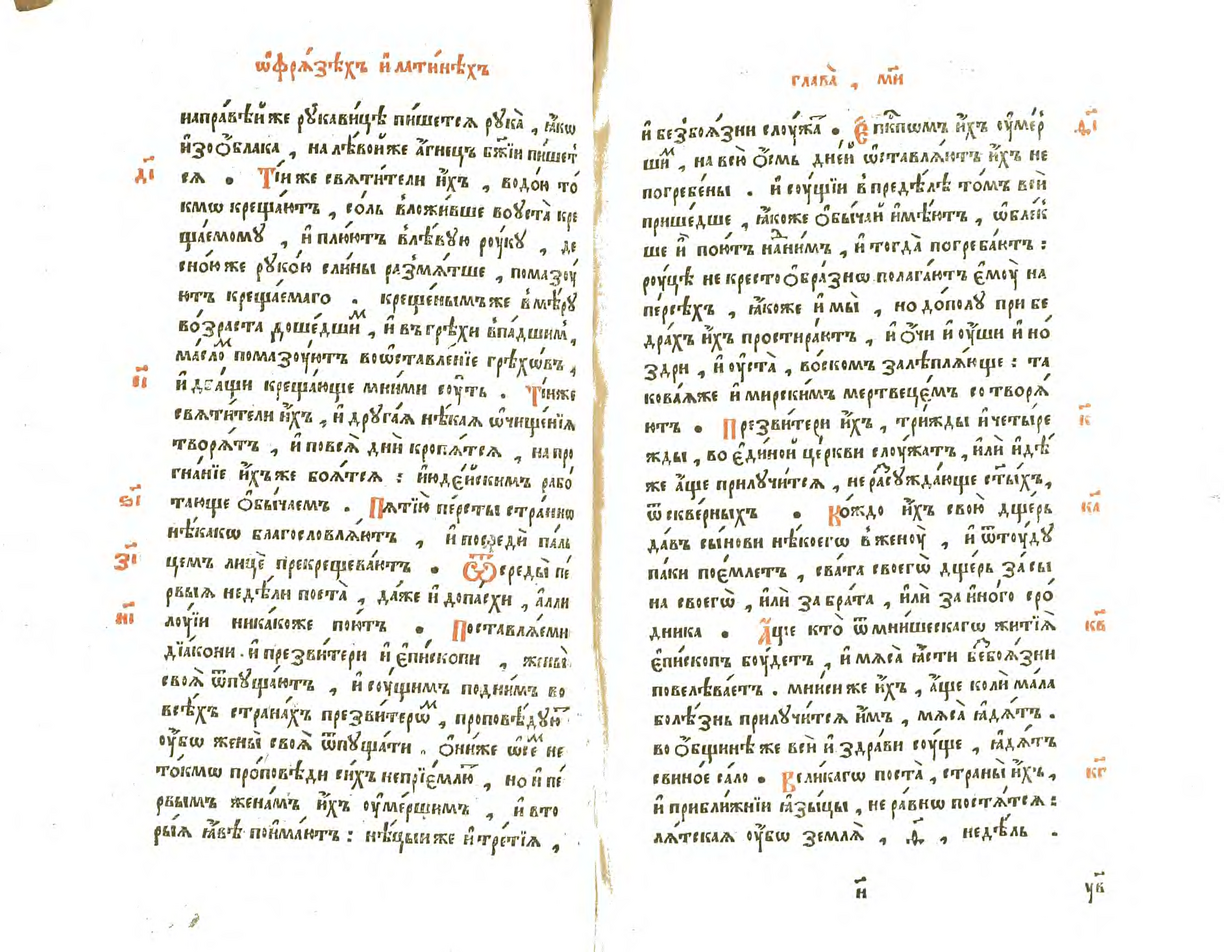 ѡ҆фрѧ́зѣхъ и҆лати́нѣхъ
напра́вѣй же рꙋкави́цѣ пи́шетсѧ рꙋка̀ , ꙗ҆́кѡ
и҆зѻ҆́блака , на лѣ́вой же а҆́гнецъ бж҃їи пи́шет
д҃і
сѧ . Ті́и же свѧти́тели и҆́хъ , водо́ю то́
кмѡ креща́ютъ , со́ль вложи́вше воуста̀ кре
ща́емомꙋ , и҆ плю́ютъ влѣ́вꙋю рꙋ́кꙋ , де
сно́ю же рꙋко́ю сли́ны размѧ́тше , пома́зоу
ютъ креща́емаго . креще́нымъ же вмѣ́рꙋ
во́зраста доше́дшимъ , и҆ въ грѣхѝ впа́дшимъ ,
ма́сломъ помазоу́ютъ воѡставле́нїе грѣхо́въ ,
є҃і
и҆ два́щи креща́юще мни́ми соу́ть . Ті́и же
свѧти́тели и҆́хъ , и҆ дрꙋга́ѧ нѣ́каѧ ѡ҆чище́нїѧ
творѧ́тъ , и҆ повсѧ̀ дни̑ кропѧ́тсѧ , на про
гна́нїе и҆́хъ же боѧ́тсѧ : и҆юде́йскимъ рабо́
ѕ҃і
тающе ѻ҆бы́чаемъ . Пѧтїю̀ пе́рсты стра́ннѡ
нѣ́какѡ благословлѧ́ютъ , и҆ посредѝ паль
з҃і
цемъ лицѐ прекрещева́ютъ . Ѿ среды̀ пе́
рвыѧ недѣ́ли поста̀ , да́же и҆ допа́схи , а҆лли
и҃і
лоу́їи ника́коже пою́тъ . Поставлѧ́еми
дїа́кони и҆ презви́тери и҆ є҆пи́скопи , жены̀
своѧ̀ ѿпꙋща́ютъ , и҆ соу́щимъ подни́мъ во
всѣ́хъ страна́хъ презви́теромъ , проповѣ́дꙋютъ
оу҆́бѡ жены̀ своѧ̀ ѿпꙋща́ти . ѻ҆ни́ же ѡ҆се́мъ не
то́кмѡ про́повѣди си́хъ непрїе́млютъ , но и҆ пе́
рвымъ жена́мъ и҆́хъ оу҆ме́ршимъ , и҆ вто
ры́ѧ ꙗ҆́вѣ пои́маютъ : нѣ́цыи же и҆ тре́тїѧ ,
глава̀ , м҃и
и҆ безбоѧ́зни слоу́жатъ . Є҆пкпѡмъ и҆́хъ оу҆ме́р
ѳ҃і
шимъ , на всю̀ ѻ҆́смь дне́й ѡ҆ставлѧ́ютъ и҆́хъ не
погребе́ны . и҆ соу́щїи впредѣ́лѣ то́мъ всѝ
прише́дше , ꙗ҆́коже ѻ҆бы́чай и҆мѣ́ютъ , ѡ҆бле́к
ше и҆̀ пою́тъ нани́мъ , и҆ тогда̀ погреба́ютъ :
роу́цѣ не кресто ѻ҆бра́знѡ полага́ютъ є҆моу̀ на
пе́рсѣхъ , ꙗ҆́коже и҆ мы̀ , но до́полꙋ при бе
дра́хъ и҆́хъ простира́ютъ , и҆ ѻ҆́чи и҆ оу҆́ши и҆ но́
здри , и҆ оу҆ста̀ , во́скомъ залѣплѧ́юще : та
кова́ѧже и҆ мирски́мъ мертвеце́мъ сотворѧ́
к҃
ютъ . Презви́тери и҆́хъ , три́жды и҆ четы́ре
жды , во є҆ди́ной це́ркви слоу́жатъ , и҆лѝ и҆дѣ́
же а҆́ще прилꙋчи́тсѧ , не расꙋжда́юще ст҃ы́хъ ,
к҃а
ѿ скве́рныхъ . Ко́ждо и҆́хъ свою̀ дще́рь
да́въ сы́нови нѣ́коегѡ вженоу̀ , и҆ ѿтоу́дꙋ
па́ки пое́млетъ , сва́та своегѡ̀ дще́рь за сы́
на своегѡ̀ , и҆лѝ за бра́та , и҆лѝ за и҆но́го сро́
к҃в
дника . А҆́ще кто̀ ѿ мни́шескагѡ житїѧ̀
є҆пи́скопъ боу́детъ , и҆ мѧса̀ ꙗ҆́сти безбоѧ́зни
повелѣва́етъ . мни́си же и҆́хъ , а҆́ще коли̑ ма́ла
болѣ́знь прилꙋчи́тсѧ и҆́мъ , мѧса̀ ꙗ҆дѧ́тъ .
во ѻ҆́бщинѣ же всѝ и҆ здра́ви соу́ще , ꙗ҆дѧ́тъ
к҃г
свино́е са́ло . Вели́кагѡ поста̀ , страны̀ и҆́хъ ,
и҆ прибли́жнїи ꙗ҆зы́цы , не ра́внѡ постѧ́тсѧ :
лѧ́тскаѧ оу҆́бѡ землѧ̀ , ѳ҃ , недѣ́ль .
и҃
ув